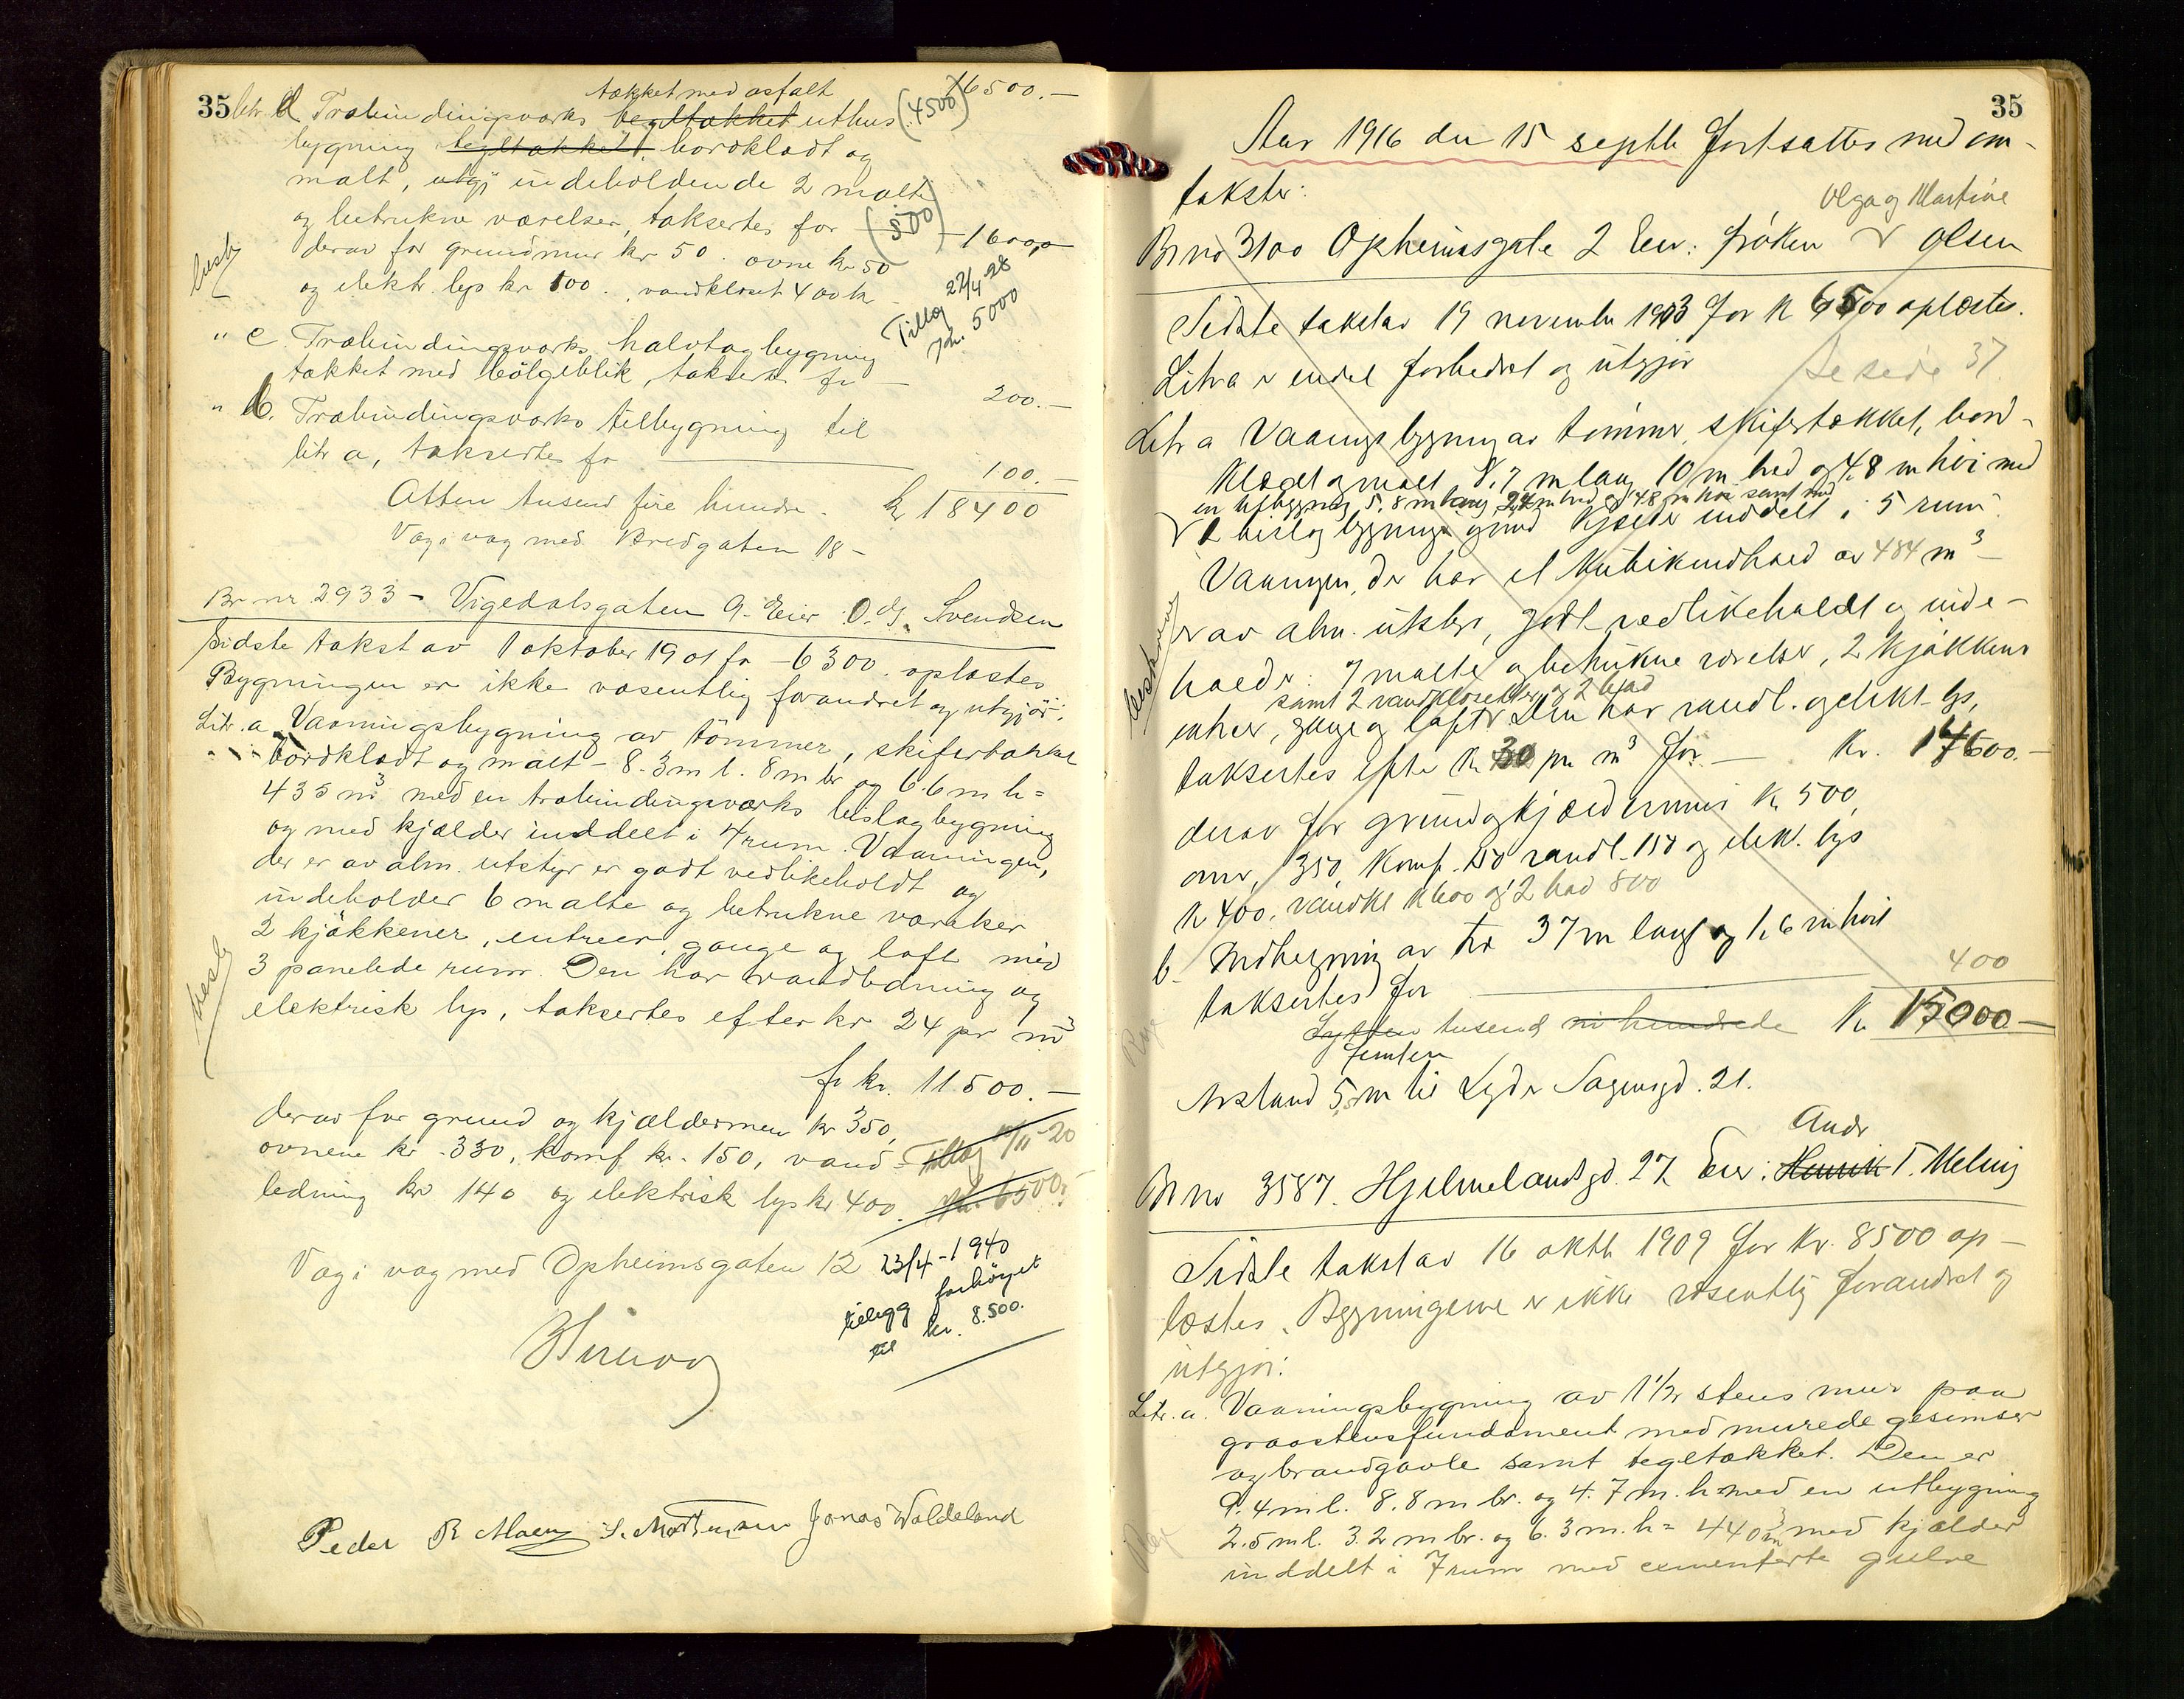 35 litr d Træbindingsverks tegltækket uthus (4500) 16500.-
tækket med asfalt
bygning tegltækket, bordklædt og
malt, utgj indeholdende 2 malte
og betrukne værelser, taksertes for (500) - 1600
derav for grundmur kr 50. ovne kr 50
og elektr. lys kr 100. vandkloset 400 kr
Tillæg 27/4-28
kr. 5000
" c. Træbindingsverks halvtagbygning
tækket med bölgeblik, taksertes for - 200.-
" b. Træbindingsverks tilbygning til
litr a, taksertes for 100.-
Atten tusend fire hundre. kr 18400
Væg i væg med Bredgaten 18-
Br nr 2933 - Vigedalsgaten 9. Eier O. G. Svendsen
Sidste takst av 1 oktober 1901 for - 6300. oplæstes
Bygningen er ikke væsentlig forandret og utgjör:
Litr. a Vaaningsbygning av tömmer, skifertækket
bordklædt og malt - 8.3 m l. 8 m br og 6.6 m h =
435 m³ med en træbindingsverks bislagbygning
og med kjælder inddelt i 4 rum. Vaaningen,
der er av alm. utstyr er godt vedlikeholdt og
indeholder 6 malte og betrukne værelser
2 kjökkener, entreer, gange og loft med
3 panelede rum. Den har vandledning og
elektrisk lys, taksertes efter kr 24 pr m³
for kr. 11.500.-
derav for grund og kjældermur kr 350,
ovnene kr. 330, komf kr. 150, vand- Tillæg 11/11-20
ledning kr 140 og elektrisk lys kr 400. kr. 6500.
Væg i væg med Opheimsgaten 12 23/4-1940
tillegg forhöyet
til kr. 8.500.
Peder R Moen S. Mortensen Jonas Waldeland
35
Aar 1916 den 15 septb fortsattes med om-
takster:
Olga og Martine
Br no 3100 Opheimsgate 2 Eier: fröken Olsen
Sidste takst av 19 november 1903 for kr 6500 oplæstes.
Litr a er endel forbedret og utgjör Se side 37
Litr a Vaaningsbygning av tömmer, skifertækket, bord-
klædt og malt 8.7 m lang 10 m bred og 4.8 m höi med
en utbygning 5.8 m lang, 2.4 m bred og 4.8 m höi samt med
2 bislagbygninger grund kjælder inddelt i 5 rum.
Vaaningen, der har et kubikindhold av 484 m³
er av alm. utstyr, godt vedlikeholdt og inde-
holder: 7 malte og betrukne værelser, 2 kjökkener
samt 2 vandklosetter og 2 bad
entreer, gange og loft. Den har vandl. og elekt. lys,
taksertes efter kr 30 pr m³ for - kr. 14600.-
derav for grund og kjældermur kr 500,
ovner, 350 komf. 150 vandl. 150 og elekt. lys
kr 400, vandkl kr 600 og 2 bad 800
b. Indhegning av træ 37 m lang og 1,6 m höit
taksertes for 400
Sytten tusend ni hundrede kr 15000-
femten
Avstand 5,5 m til Lyder Sagensgd. 21.
Andr
Br no 3587. Hjelmelandsgd. 27 Eier: Henrik T. Meling
Sidste takst av 16 oktb 1909 for kr. 8500 op-
læstes. Bygningene er ikke væsentlig forandret og
utgjör:
Litr. a. Vaaningsbygning av 1 1/2 stens mur paa
graastensfundament med murede gesimser
og brandgavle samt tegltækket. Den er
9.4 m l. 8.8 m br. og 4.7 m. h. med en utbygning
2.5 m l. 3.2 m br. og 6.3 m. h = 440 m³ med kjælder
inddelt i 7 rum med cementerte gulve